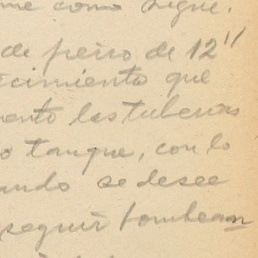 me como sigue.
de fierro de 12"
cimiento que
ento las tuberias
o tanque, con lo
ando se desee
seguir bombean